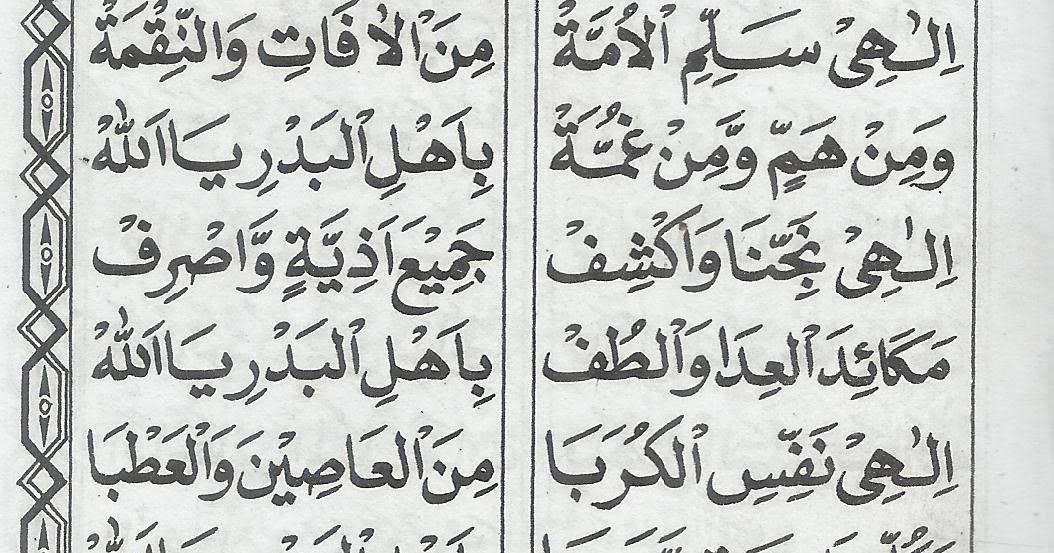 اِلٰهِيْ سَلِّمِ الْاُمَّةْ مِنَ الْاٰفَاتِ وَالنِّقْمَةْ
وَمِنْ هَمٍّ وَّمِنْ غُمَّةْ بِاَهْلِ الْبَدْرِ يَا اَللّٰهْ
اِلٰهِيْ نَجِّنَا وَاكْشِفْ جَمِيْعَ اَذِيَّةٍ وَّاصْرِفْ
مَكَائِدَ الْعِدَا وَالْطُفْ بِاَهْلِ الْبَدْرِ يَا اَللّٰهْ
اِلٰهِيْ نَفِّسِ الْكُرَبَا مِنَ الْعَاصِيْنَ وَالْعَطْبَا